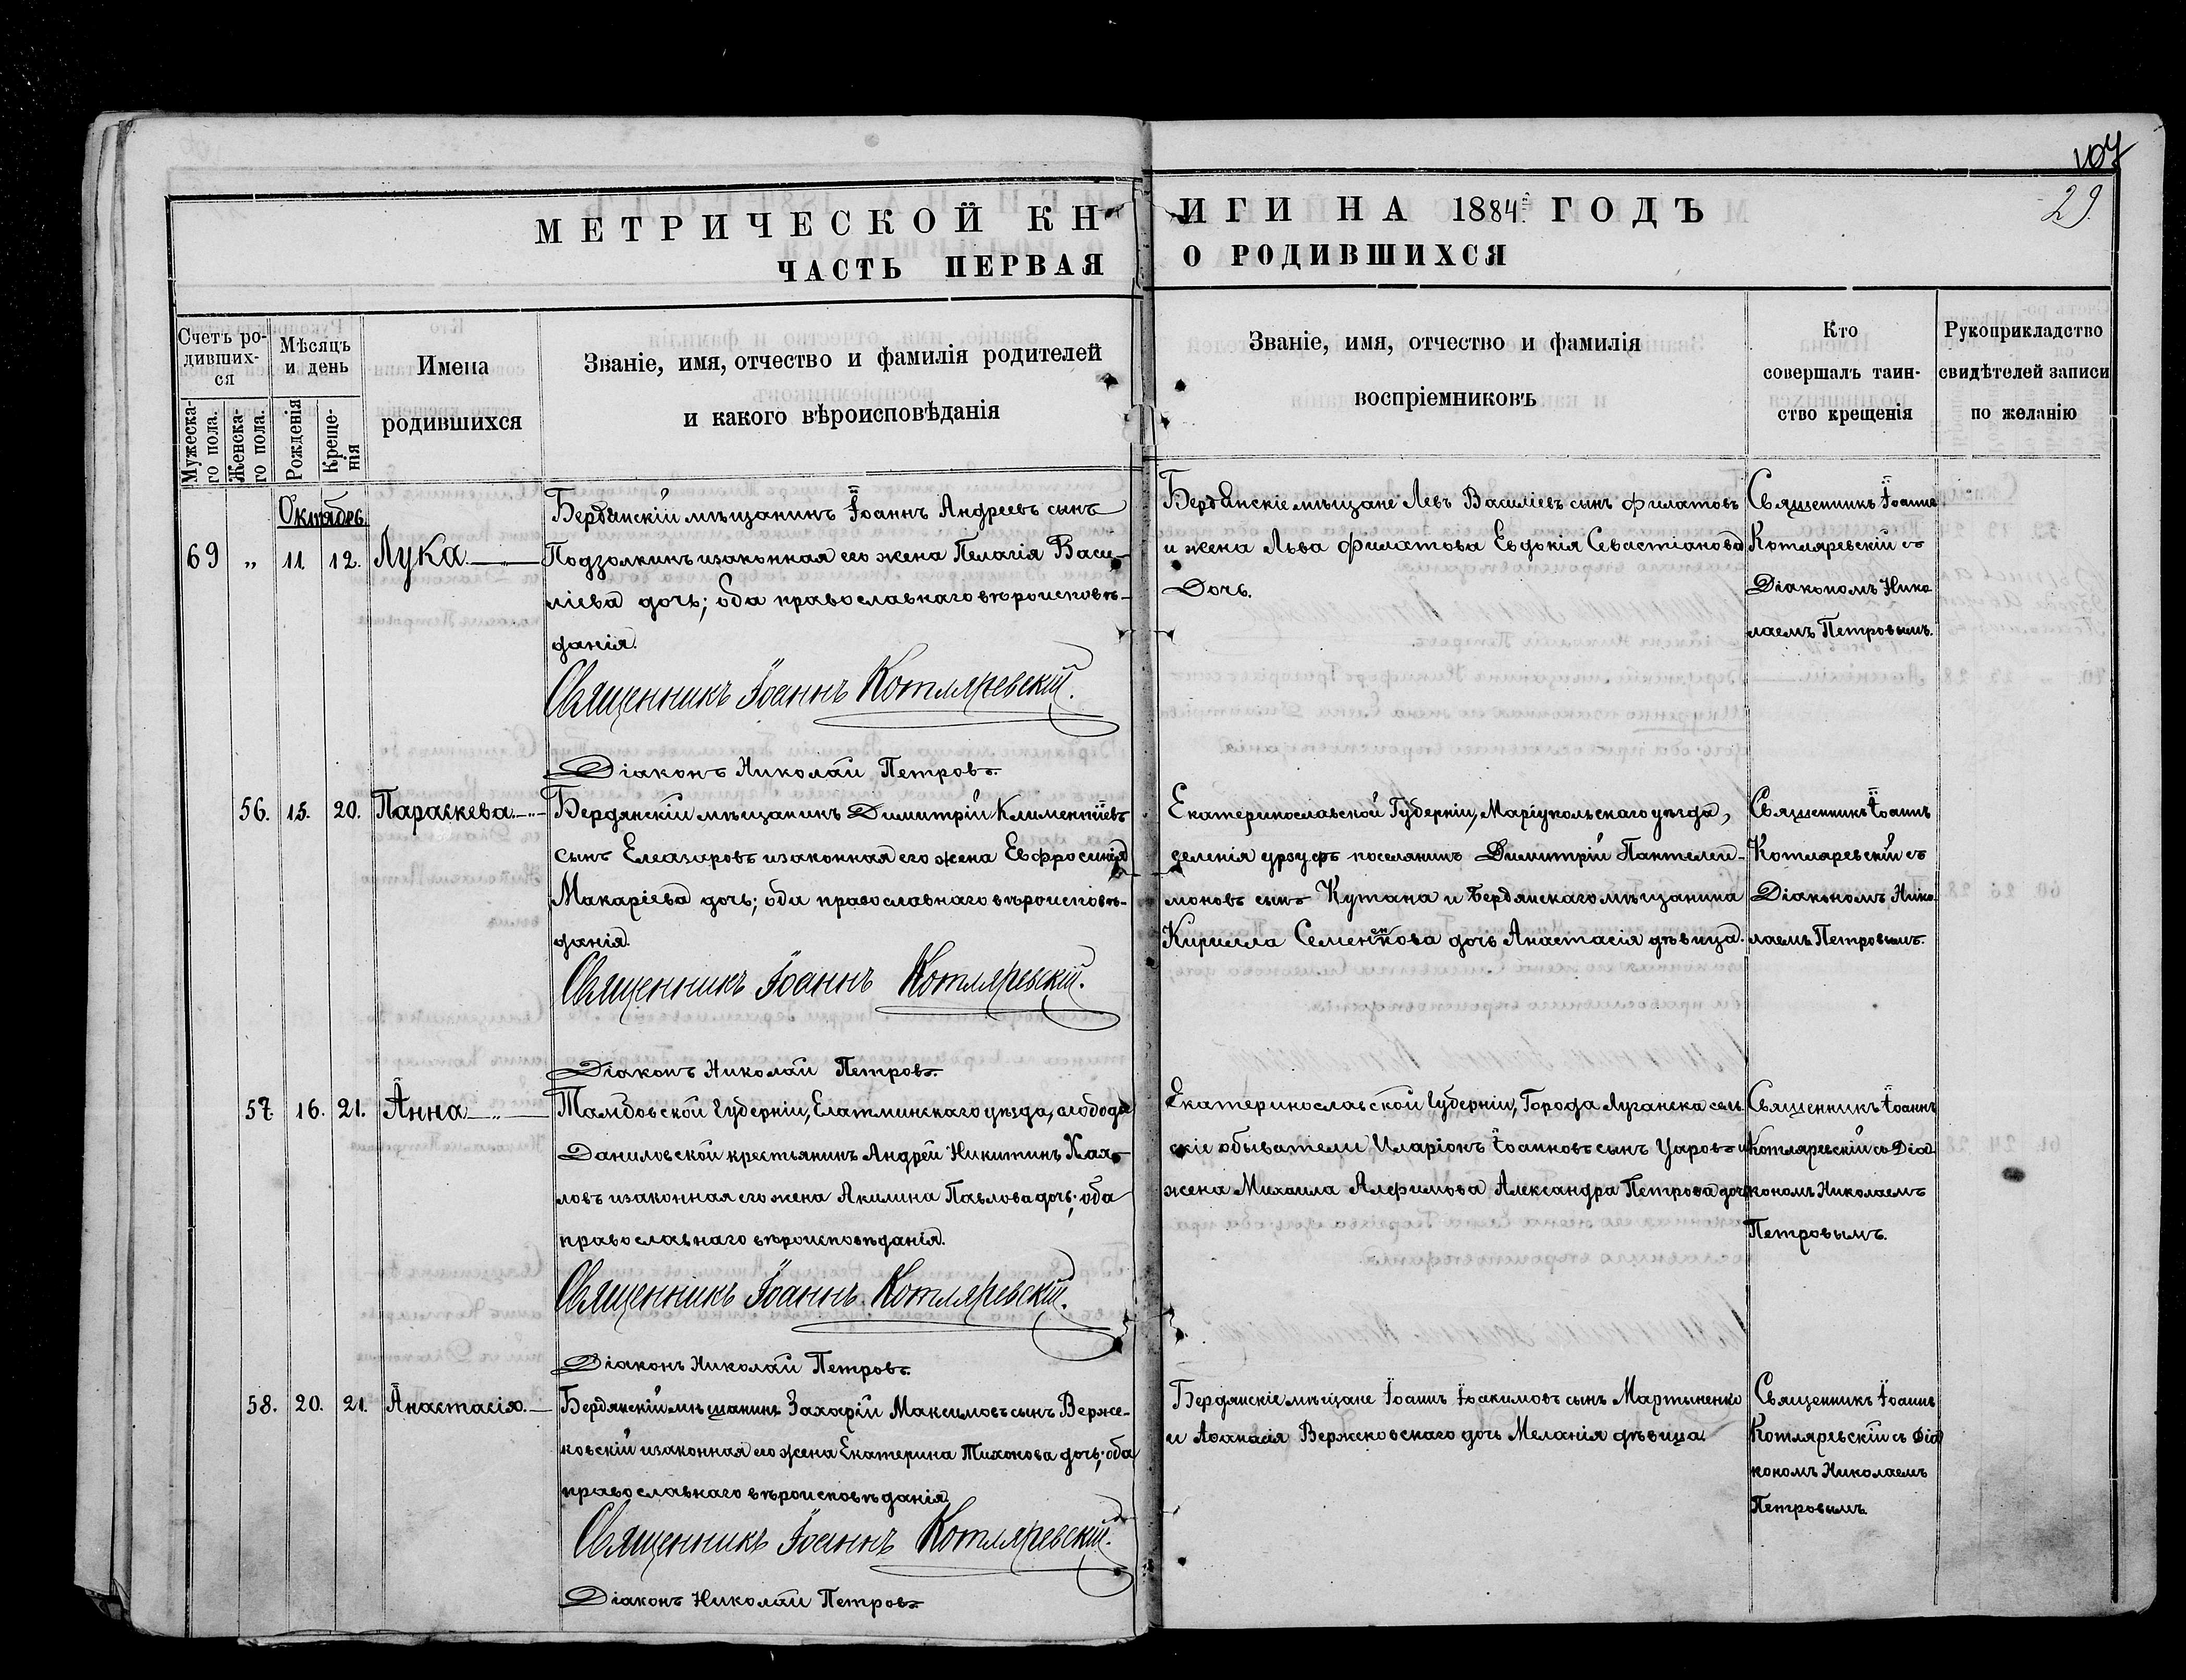 107
29.
МЕТРИЧЕСКОЙ КНИГИ НА 1884й ГОДЪ
ЧАСТЬ ПЕРВАЯ О РОДИВШИХСЯ
Счетъ ро-
дивших-
ся
Мужеска-
го пола.
Женска-
го пола.
Мѣсяцъ
и день
Рожденія
Креще-
нія
Имена
родившихся
Званіе, имя, отчество и фамилія родителей
и какого вѣроисповѣданія
Званіе, имя, отчество и фамилія
воспріемниковъ
Кто
совершалъ таин-
ство крещенія
Рукоприкладство
свидѣтелей записи
по желанію
Октябрь
69 „ 11. 12. Лука
Бердянскій мѣщанинъ Іоаннъ Андреевъ сынъ
Подзолкинъ и законная его жена Пелагія Васи-
ліева дочь; оба православнаго вѣроисповѣ-
данія.
Священникъ Іоаннъ Котляревскій.
Діаконъ Николай Петровъ.
Бердянскіе мѣщане Левъ Василіевъ сынъ Филатовъ
и жена Льва Филатова Евдокія Севастіанова
Дочь.
Священникъ Іоаннъ
Котляревскій съ
Діакономъ Нико-
лаемъ Петровымъ.
56. 15. 20. Параскева
Бердянскій мѣщанинъ Димитрій Климентіевъ
сынъ Елеазаровъ и законная его жена Евфросинія
Макаріева дочь; оба православнаго вѣроисповѣ-
данія.
Священникъ Іоаннъ Котляревскій.
Діаконъ Николай Петровъ.
Екатеринославской Губерніи, Маріупольскаго уѣзда,
селенія Урзуфъ поселянинъ Димитрій Пантелеи-
моновъ сынъ Кутана и Бердянскаго мѣщанина
Кирилла Семененкова дочь Анастасія дѣвица.
Священникъ Іоаннъ
Котляревскій съ
Діакономъ Нико-
лаемъ Петровымъ.
57. 16. 21. Анна
Тамбовской Губерніи, Елатминскаго уѣзда, слободы
Даниловской крестьянинъ Андрей Никитинъ
ловъ и законная его жена Акилина Павлова дочь; оба
православнаго вѣроисповѣданія.
Священникъ Іоаннъ Котляревскій.
Діаконъ Николай Петровъ.
Екатеринославской Губерніи, Города Луганска сель-
скіе обыватели Иларіонъ Іоанновъ сынъ Уаровъ и
жена Михаила Алфимова Александра Петрова дочь
Священникъ Іоаннъ
Котляревскій съ Діа-
кономъ Николаемъ
Петровымъ.
58. 20. 21. Анастасія.
Бердянскій мѣщанинъ Захарій Максимовъ сынъ Верже-
ковскій и законная его жена Екатерина Тихонова дочь; оба
православнаго вѣроисповѣданія.
Священникъ Іоаннъ Котляревскій.
Діаконъ Николай Петровъ.
Бердянскіе мѣщане Іоаннъ Іоакимовъ сынъ Мартыненко
и Аѳанасія Вержековскаго дочь Меланія дѣвица.
Священникъ Іоаннъ
Котляревскій съ Діа-
кономъ Николаемъ
Петровымъ.